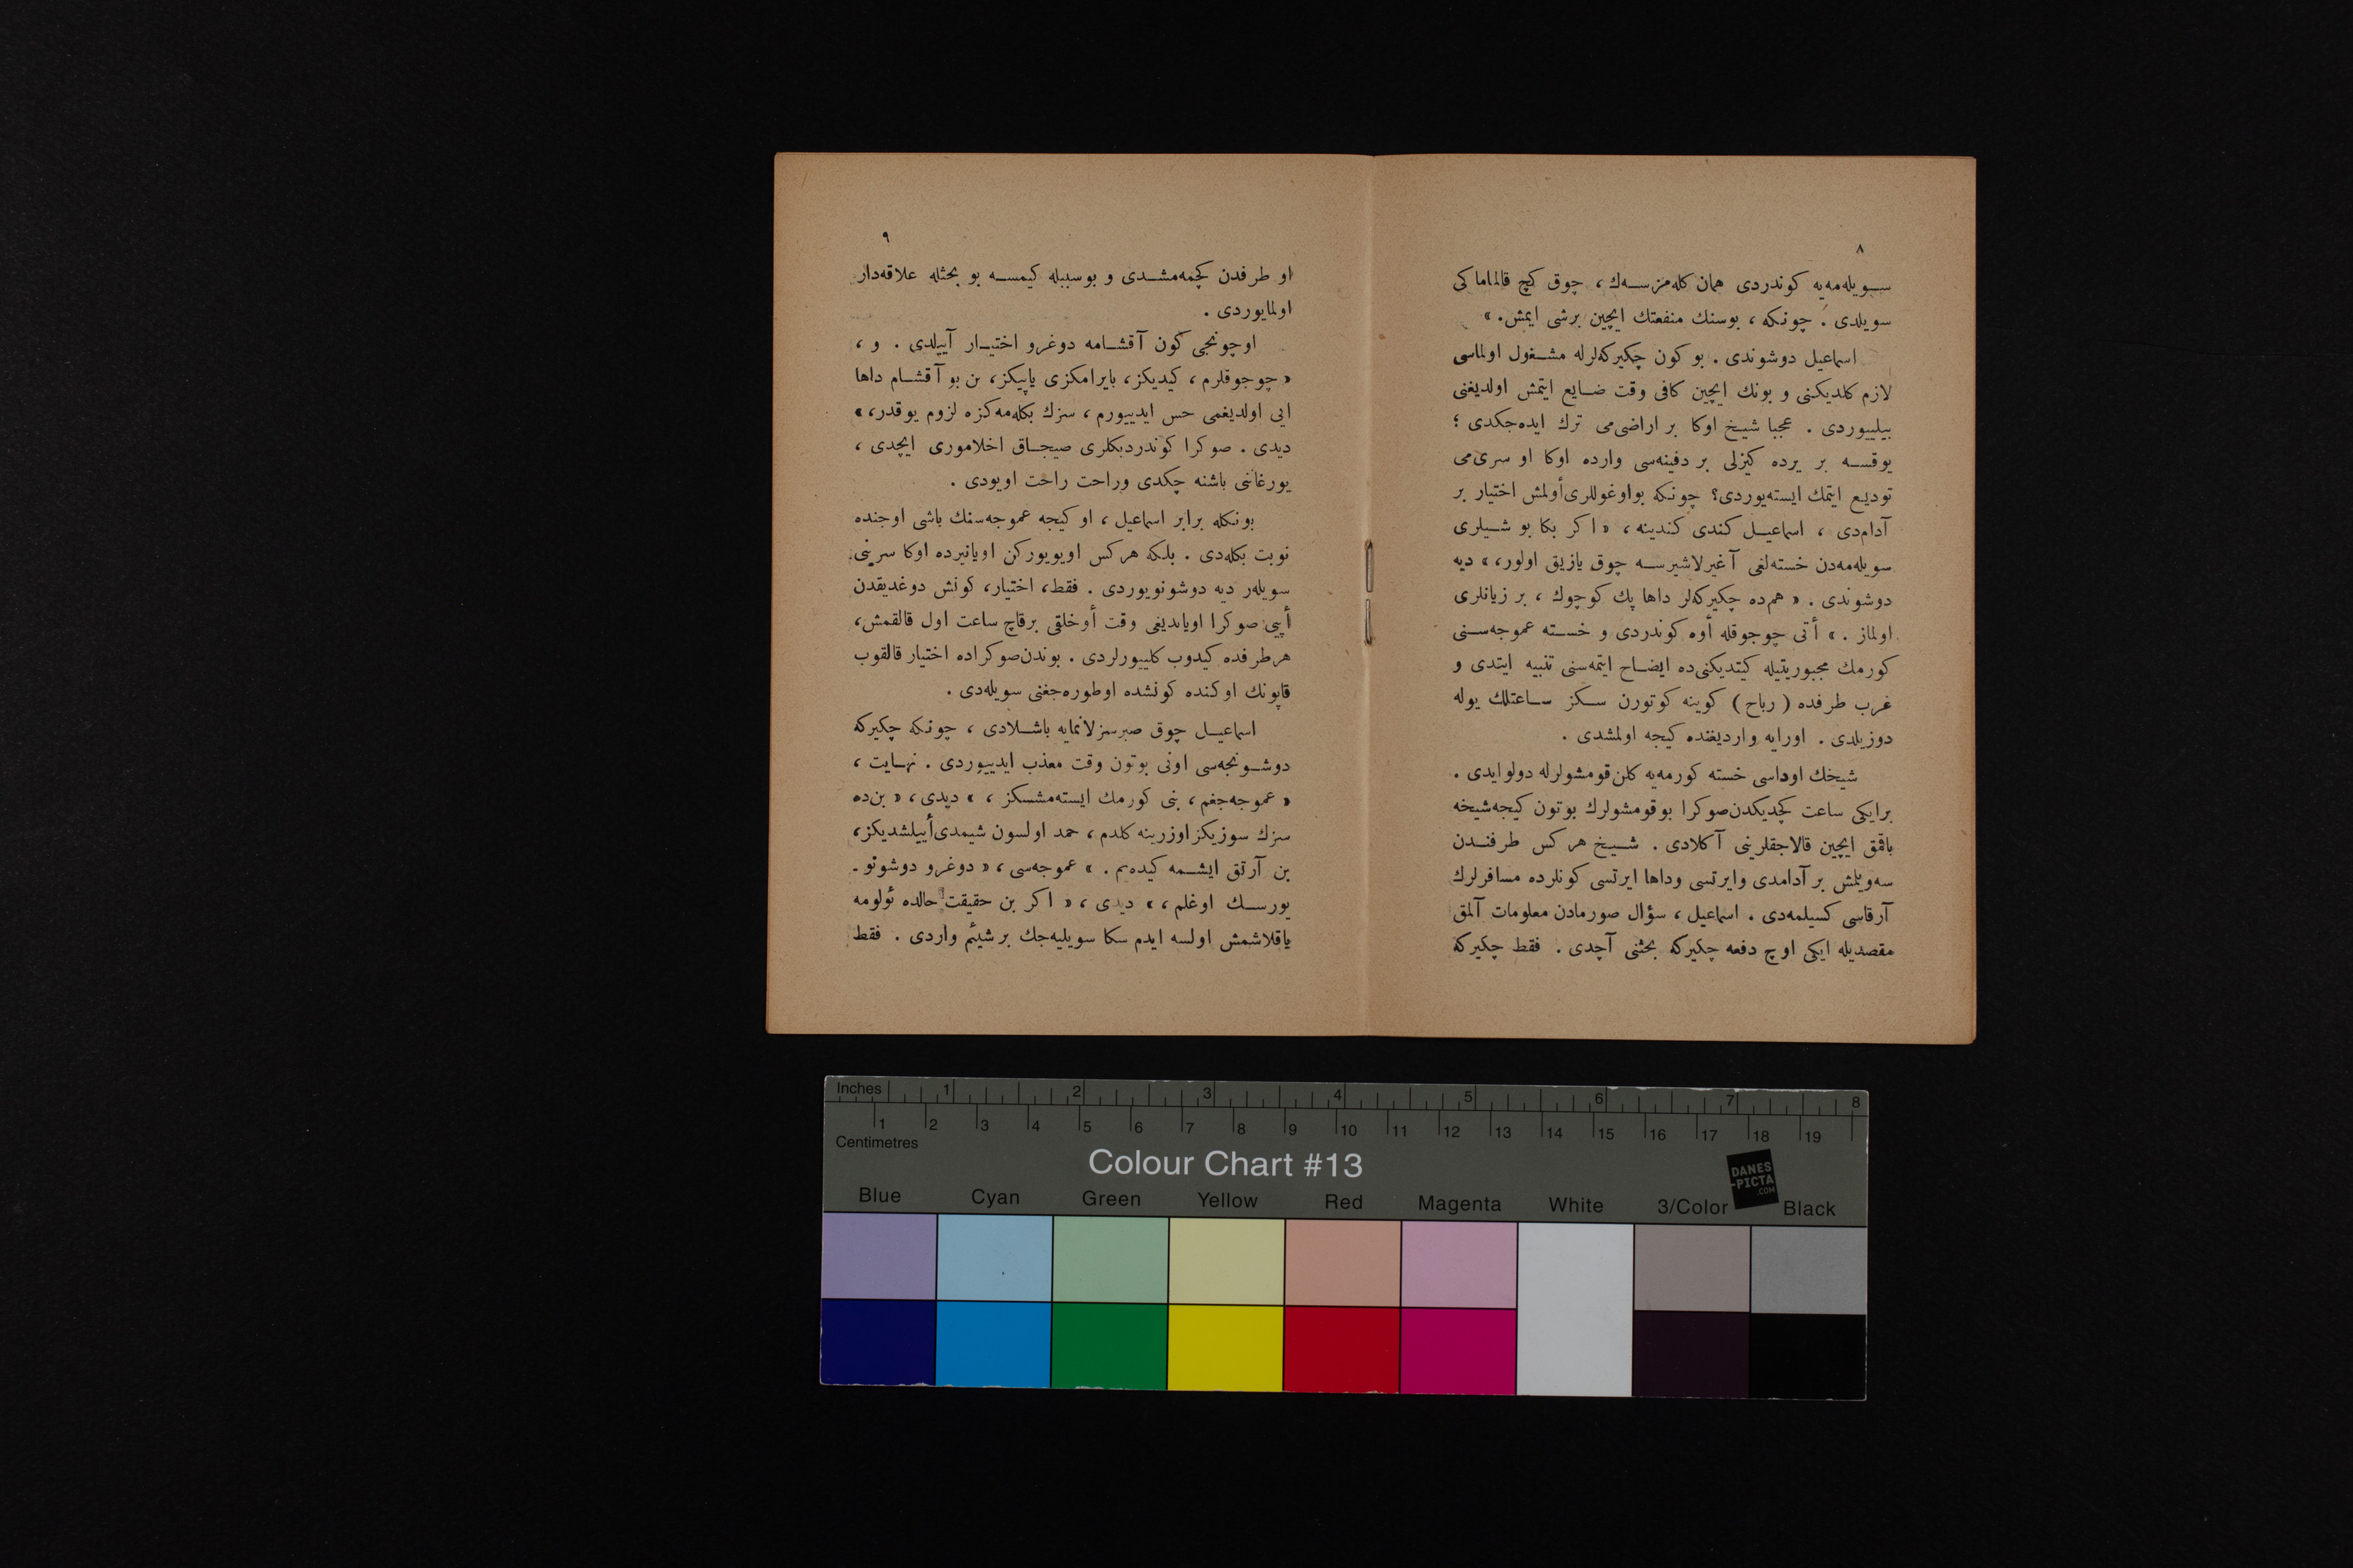 ٨
سويله‌مه‌يه كوندردى همان كله‌مزسه‌ك ، چوق كچ قالماماكى
سويلدى . چونكه ، بوسنك منفعتك ايچين برشى ايمش. »
اسماعيل دوشوندى . بو كون چكيركه‌لرله مشغول اولماسى
لازم كلديكنى و بونك ايچين كافى وقت ضايع ايتمش اولديغنى
بيلييوردى . عجبا شيخ اوكا بر اراضى‌مى ترك ايده‌جكدى ؛
يوقسه بر يرده كيزلى بر دفينه‌سى وارده اوكا او سرى‌مى
توديع ايتمك ايسته‌يوردى؟ چونكه بواوغوللرى‌أولمش اختيار بر
آدام‌دى ، اسماعيل كندى كندينه ، « اكر بكا بو شيلرى
سويله‌مه‌دن خسته‌لغى آغيرلاشيرسه چوق يازيق اولور، » ديه
دوشوندى . « هم‌ده چكيركه‌لر داها پك كوچوك ، بر زيانلرى
اولماز . » أتى چوجوقله أوه كوندردى و خسته عموجه‌سنى
كورمك مجبوريتيله كيتديكنى‌ده ايضاح ايتمه‌سنى تنبيه ايتدى و
غرب طرفده ( رباح ) كوينه كوتورن سكز ساعتلك يوله
دوزيلدى . اورايه وارديغنده كيجه اولمشدى .
شيخك اوداسى خسته كورمه‌يه كلن قومشولرله دولوايدى .
برايكى ساعت كچديكدن‌صوكرا بوقومشولرك بوتون كيجه‌شيخه
باقمق ايچين قالاجقلرينى آكلادى . شيخ هركس طرفندن
سه‌ويلمش بر آدامدى وايرتسى وداها ايرتسى كونلرده مسافرلرك
آرقاسى كسيلمه‌دى . اسماعيل ، سؤال صورمادن معلومات آلمق
مقصديله ايكى اوچ دفعه چكيركه بحثنى آچدى . فقط چكيركه
٩
او طرفدن كچمه‌مشدى و بوسببله كيمسه بو بحثله علاقه‌دار
اولمايوردى .
اوچونجى كون آقشامه دوغرو اختيار آييلدى . و ،
« چوجوقلرم ، كيديكز، بايرامكزى ياپيكز، بن بو آقشام داها
ايى اولديغمى حس ايدييورم ، سزك بكله‌مه‌كزه لزوم يوقدر، »
ديدى . صوكرا كوندردبكلرى صيجاق اخلامورى ايچدى ،
يورغاننى باشنه چكدى وراحت راحت اويودى .
بونكله برابر اسماعيل ، او كيجه عموجه‌سنك باشى اوجنده
نوبت بكله‌دى . بلكه هركس اويويوركن اويانيرده اوكا سرينى
سويله‌ر ديه دوشونويوردى . فقط، اختيار، كونش دوغديقدن
أپى صوكرا اوياندیغى وقت أوخلقى برقاچ ساعت اول قالقمش،
هرطرفده كيدوب كلييورلردى . بوندن‌صوكراده اختيار قالقوب
قاپونك اوكنده كونشده اوطوره‌جغنى سويله‌دى .
اسماعيل چوق صبرسزلانمايه باشلادى ، چونكه چكيركه
دوشونجه‌سى اونى بوتون وقت معذب ايدييوردى . نهايت ،
« عموجه‌جغم ، بنى كورمك ايسته‌مشسكز ، » ديدى ، « بن‌ده
سزك سوزيكز اوزرينه كلدم ، حمد اولسون شيمدى‌أييلشديكز،
بن آرتق ايشمه كيده‌يم . » عموجه‌سى ، « دوغرو دوشونو ـ
يورسك اوغلم ، » ديدى ، « اكر بن حقيقت حالده ئولومه
ياقلاشمش اولسه ايدم سكا سويليه‌جك برشيئم واردى . فقط
Inches 1 2 3 4 5 6 7 8
1 2 3 4 5 6 7 8 9 10 11 12 13 14 15 16 17 18 19
Centimetres
Colour Chart #13
DANES
-PICTA
.COM
Blue Cyan Green Yellow Red Magenta White 3/Color Black